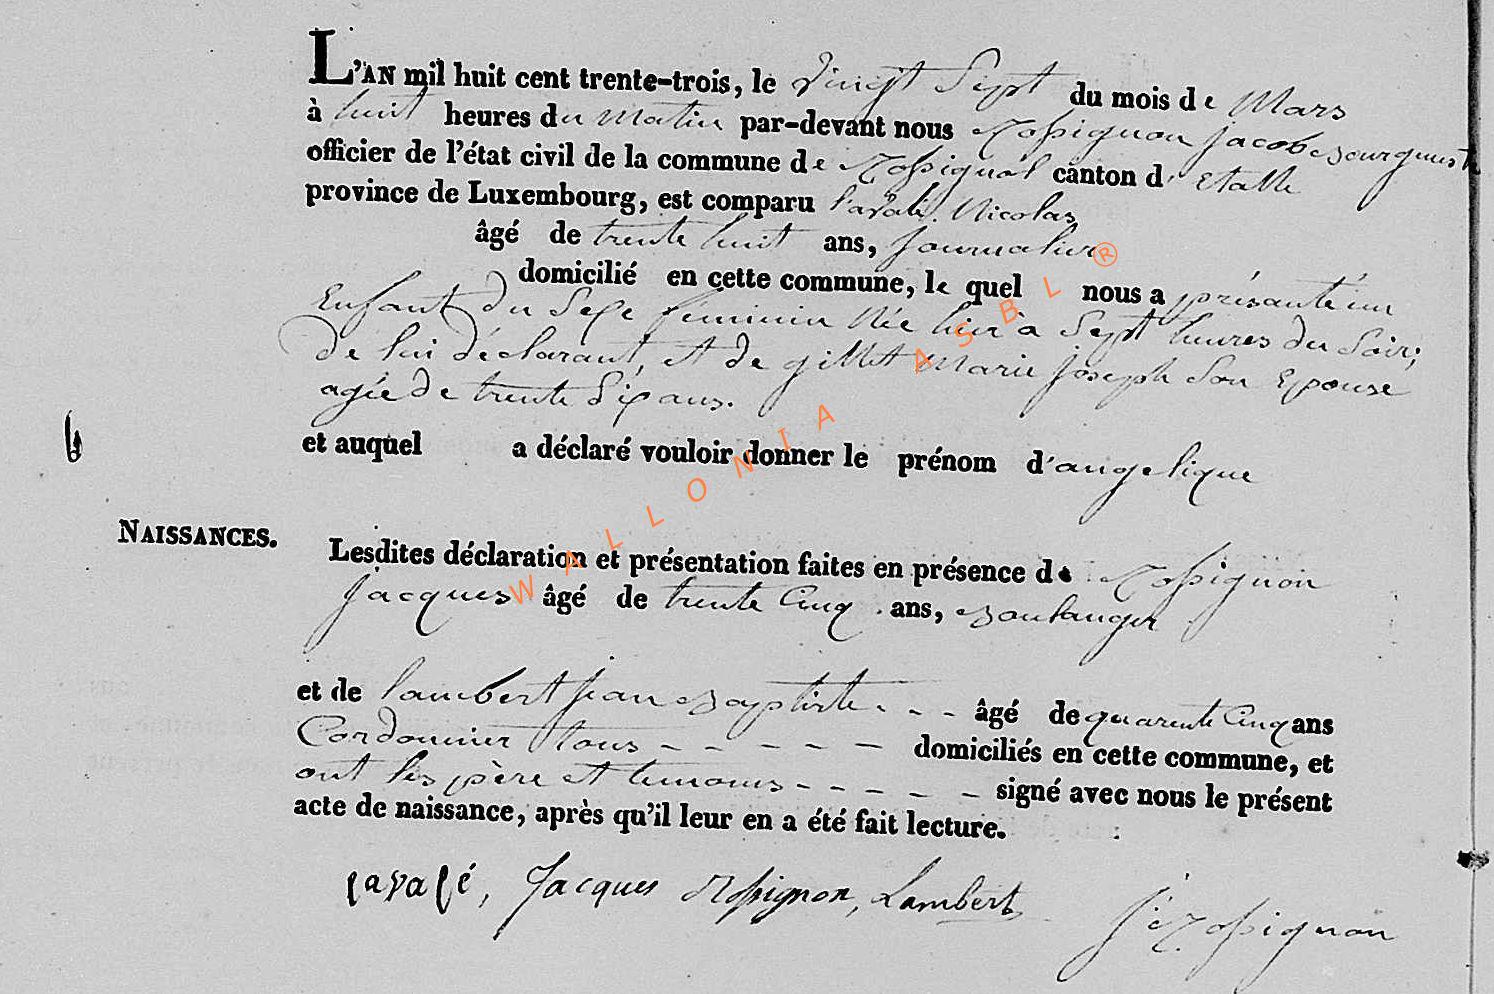 L'AN mil huit cent trente-trois, le vingt Sept du mois de Mars
à huit heures du matin par-devant nous Rossignon Jacob Bourgmest
officier de l'état civil de la commune de Rossignol canton d'Etalle
province de Luxembourg, est comparu Lavalé Nicolas
âgé de trente huit ans, journalier
domicilié en cette commune, le quel nous a présanté un
Enfant du Sexe féminin Née hier à Sept heures du Soir;
de lui déclarant, et de gillet Marie Joseph Son Epouse
agée de trente Six ans.
et auquel a déclaré vouloir donner le prénom d'angelique
6
NAISSANCES.
Lesdites déclaration et présentation faites en présence de Rossignon
Jacques âgé de trente Cinq ans, Boulanger
et de Lambert Jean Baptiste - - - âgé de quarente Cinq ans
Cordonnier tous - - - - - domiciliés en cette commune, et
ont les père et temoins - - - - - signé avec nous le présent
acte de naissance, après qu'il leur en a été fait lecture.
Lavalé, Jacques Rossignon, Lambert
J: Rossignon
WALLONIA ASBL ®